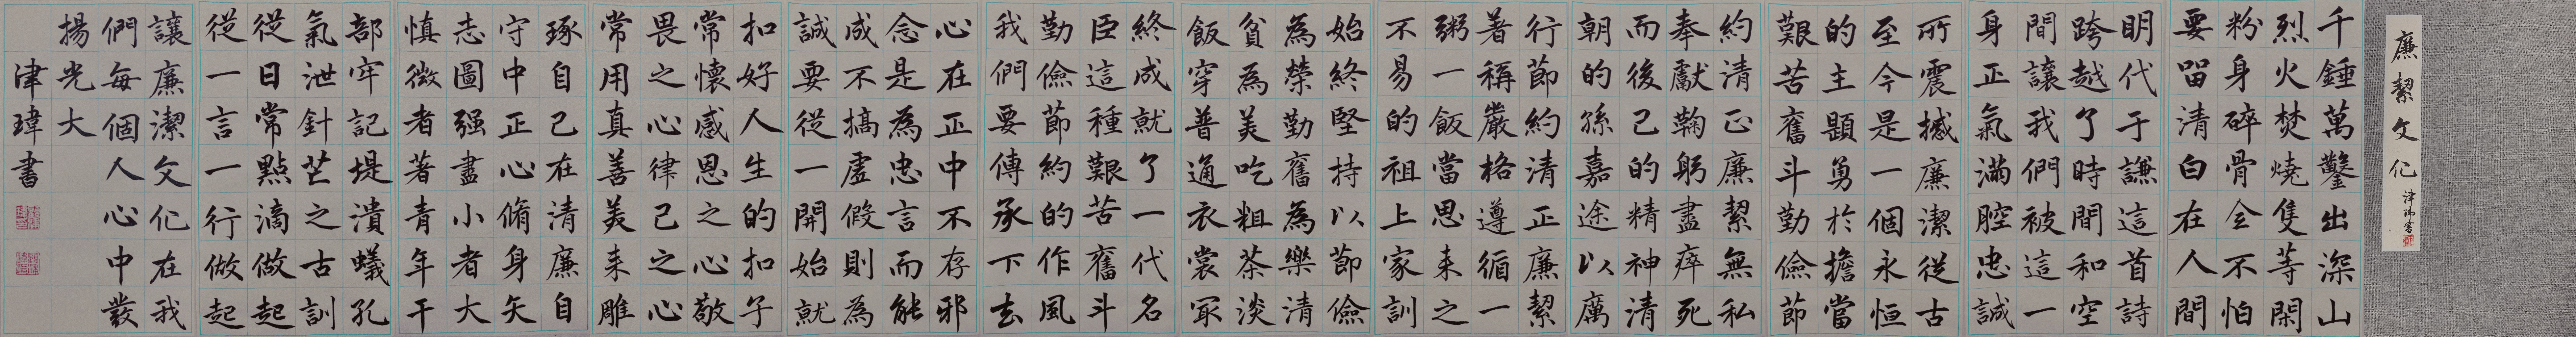 廉絜文化
津瑋書
千錘萬鑿出深山
烈火焚燒隻等閑
粉身碎骨全不怕
要留清白在人間
明代于謙這首詩
跨越了時間和空
間讓我們被這一
身正氣滿腔忠誠
所震撼廉潔從古
至今是一個永恒
的主題勇於擔當
艱苦奮斗勤儉節
約清正廉絜無私
奉獻鞠躬盡瘁死
而後已的精神清
朝的孫嘉途以厲
行節約清正廉絜
著稱嚴格遵循一
粥一飯當思来之
不易的祖上家訓
始終堅持以節儉
為榮勤奮為樂清
貧為美吃粗茶淡
飯穿普通衣裳冣
終成就了一代名
臣這種艱苦奮斗
勤儉節約的作風
我們要傳承下去
心在正中不存邪
念是為忠言而能
成不搞虛假則為
誠要從一開始就
扣好人生的扣子
常懷感恩之心敬
畏之心律己之心
常用真善美来雕
琢自己在清廉自
守中正心脩身矢
志圖强盡小者大
慎微者著青年干
部牢記堤潰蟻孔
氣泄針芒之古訓
從日常點滴做起
從一言一行做起
讓廉潔文化在我
們每個人心中發
揚光大
津瑋書